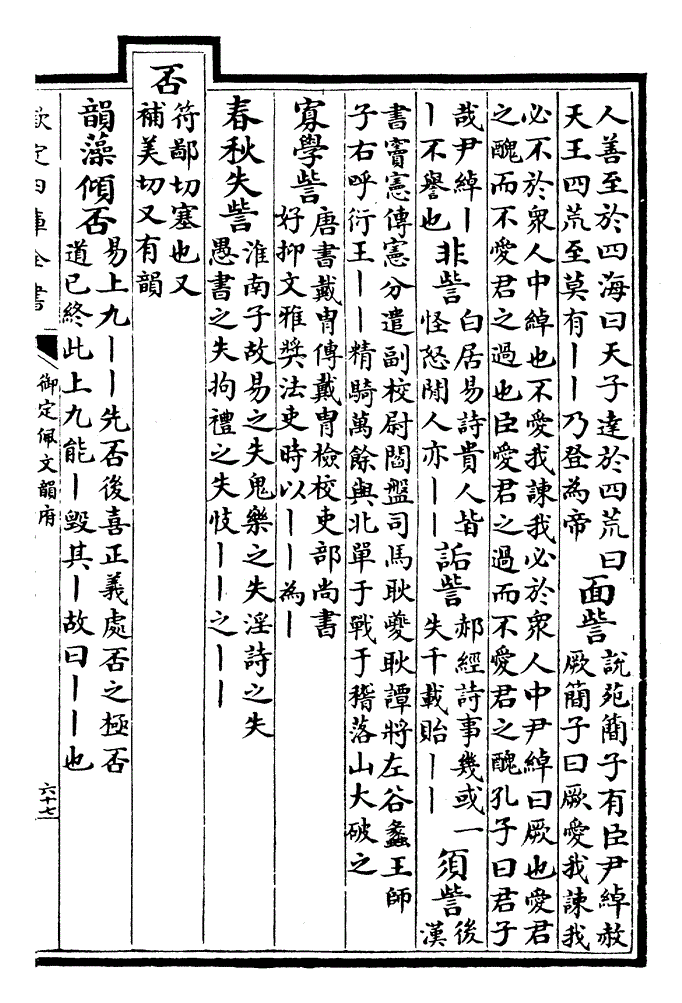 人善至於四海曰天子達於四荒曰
天王四荒至莫有丨丨乃登為帝
面訾
說苑簡子有臣尹綽赦
厥簡子曰厥愛我諫我
必不於衆人中綽也不愛我諫我必於衆人中尹綽曰厥也愛君
之醜而不愛君之過也臣愛君之過而不愛君之醜孔子曰君子
哉尹綽丨
丨不譽也
非訾
白居易詩貴人皆
怪怒閒人亦丨丨
詬訾
郝經詩事幾或一
失千載貽丨丨
須訾
後
漢
書竇憲傳憲分遣副校尉閻盤司馬耿夔耿譚將左谷蠡王師
子右呼衍王丨丨精騎萬餘與北單于戰于稽落山大破之
寡學訾
唐書戴冑傳戴冑檢校吏部尚書
好抑文雅奬法吏時以丨丨為丨
春秋失訾
淮南子故易之失鬼樂之失淫詩之失
愚書之失拘禮之失忮丨丨之丨丨
否
符鄙切塞也又
補美切又有韻
韻藻傾否
易上九丨丨先否後喜正義處否之極否
道已終此上九能丨毁其丨故曰丨丨也
欽定四庫全書
御定佩文韻府
六十七